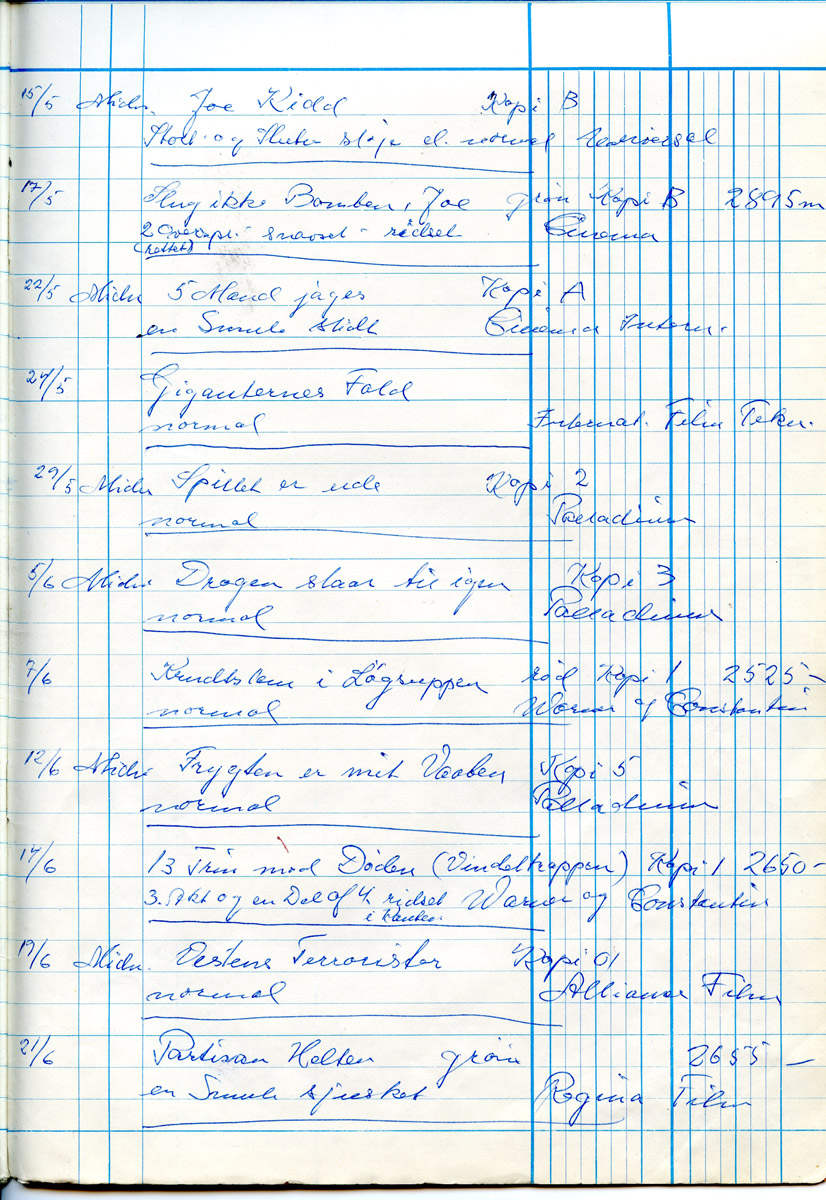 15/5 Midn. Joe Kidd Kopi B
Start og Slutn støje el. normal Universal
17/5 Slug ikke Bomben, Joe grøn Kopi B 2895 m
2 snavset - ridset Cinema
(hattet)
22/5 Midn 5 Mand jages Kopi A
en Smule slidt Cinema Intern.
24/5 Giganternes Fald
normal Internat. Film Tekn.
29/5 Midn Spillet er ude Kopi 2
normal Palladium
5/6 Midn Dragen slaar til igen Kopi 3
normal Palladium
7/6 Krudtslam i Løgsuppen rød Kopi 1 2525 -
normal Warner og Constantin
12/6 Midn Frygten er mit Vaaben Kopi 5
normal Palladium
14/6 13 Trin mod Døden (Vindeltrappen) Kopi 1 2650 -
3. Akt og en Del af 4. ridset Warner og Constantin
i Kanten
19/6 Midn. Vestens Terrorister Kopi 01
normal Alliance Film
21/6 Partisan Helten grøn 2655 -
en Smule sjusket Regina Film